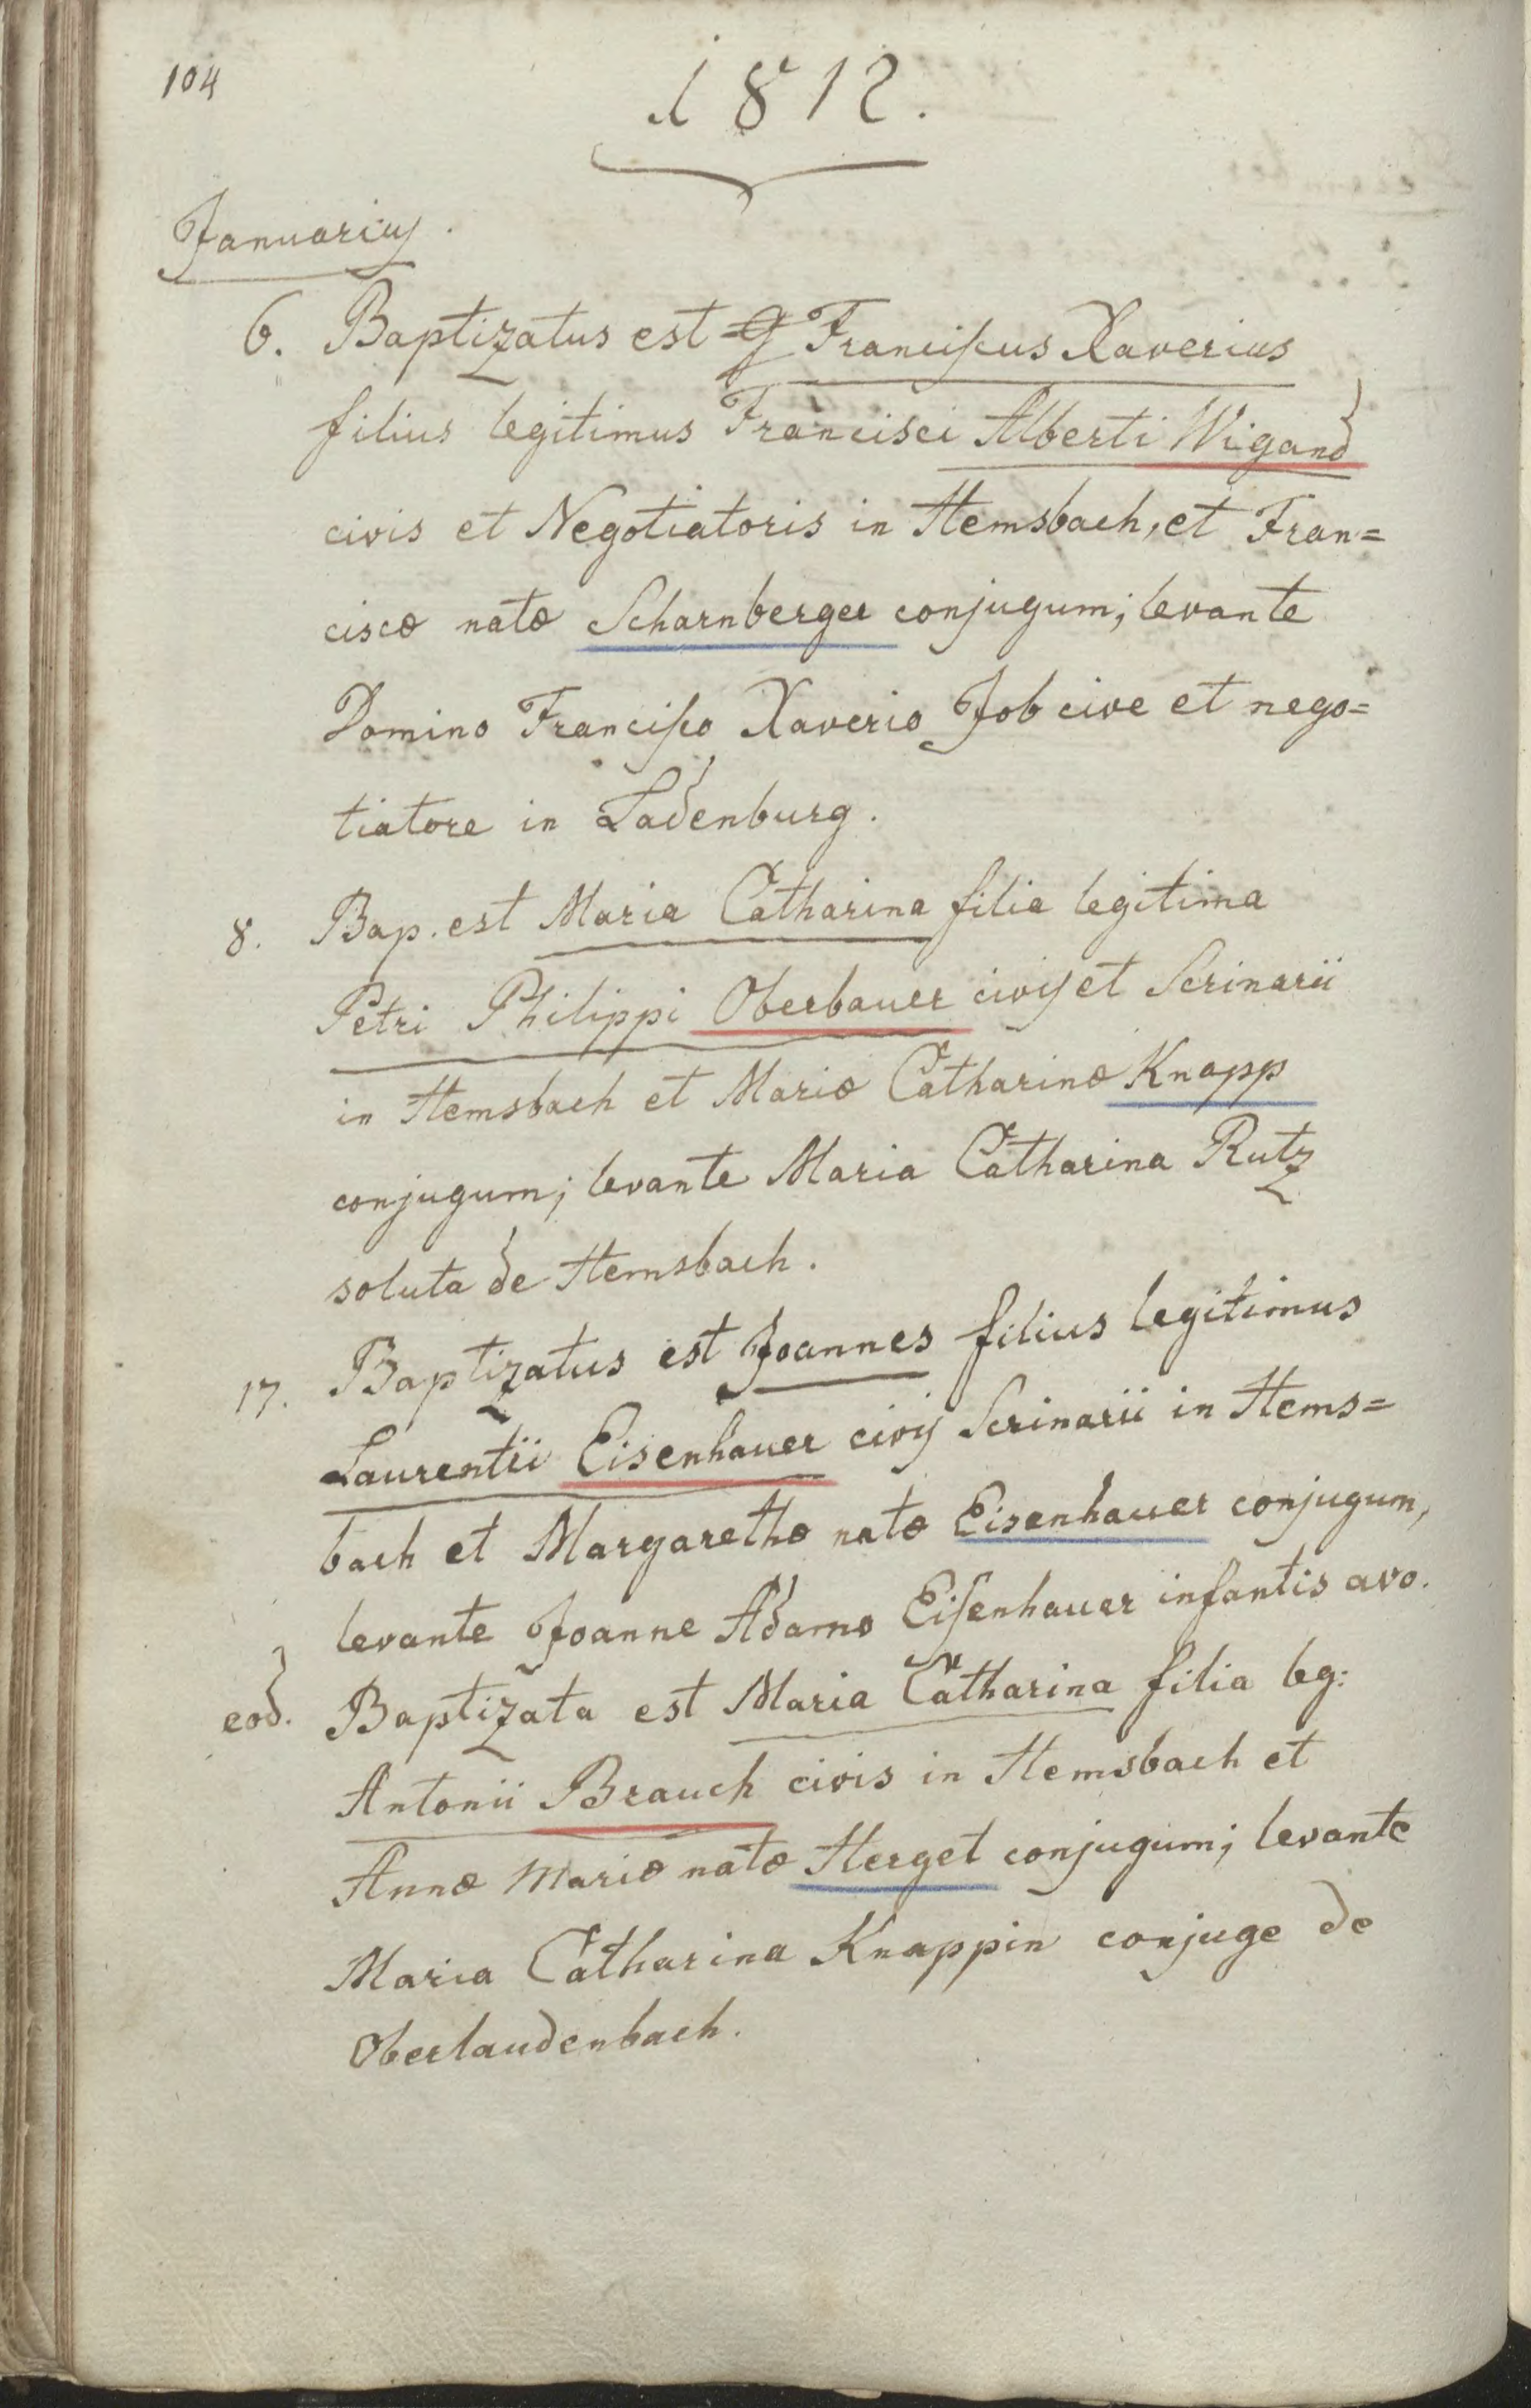 104
1812.
Januarius.
6. Baptizatus est Franciſcus Xaverius
filius legitimus Francisci Alberti Wigand
civis et Negotiatoris in Hemsbach, et Fran=
ciscæ natæ Scharnberger conjugum; levante
Domino Franciſco Xaverio Job cive et nego=
tiatore in Ladenburg.
8. Bap. est Maria Catharina filia legitima
Petri Philippi Oberbauer civis et Scrinarii
in Hemsbach et Mariæ Catharinæ Knapp
conjugum; levante Maria Catharina Rutz
soluta de Hemsbach.
17. Baptizatus est Joannes filius legitimus
Laurentii Eisenhauer civis Scrinarii in Hems=
bach et Margarethæ natæ Eisenhauer conjugum,
levante Joanne Adamo Eiſenhauer infantis avo.
eod. Baptizata est Maria Catharina filia leg:
Antonii Brauch civis in Hemsbach et
Annæ Mariæ natæ Herget conjugum; levante
Maria Catharina Knappin conjuge de
Oberlaudenbach.